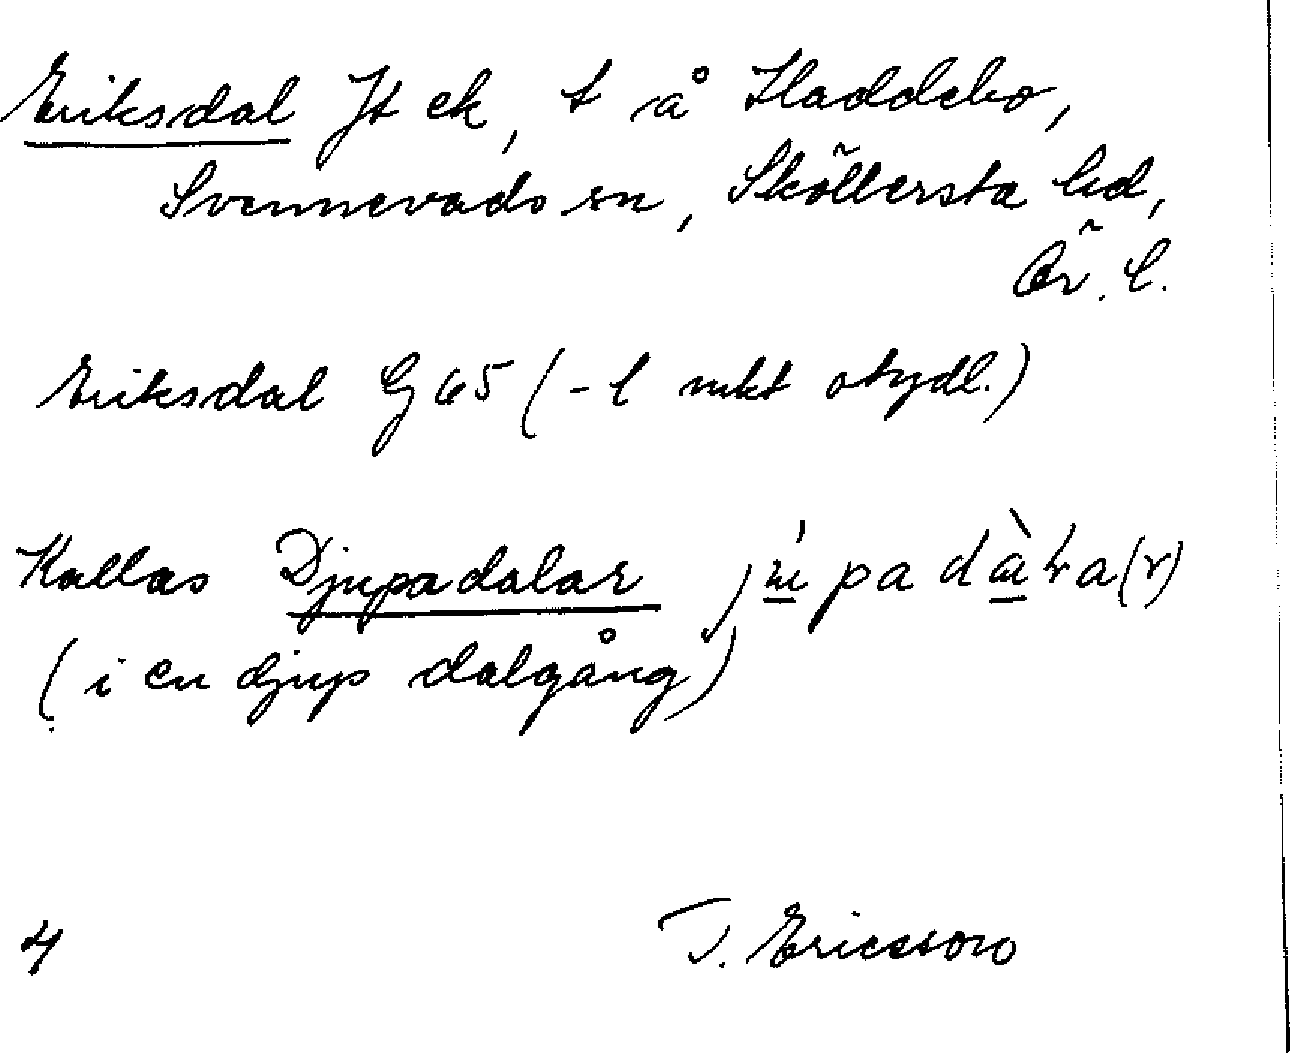 Eriksdal Jt ek, t å Haddebo,
Svennevads sn, Sköllersta hd,
Ör. l.
Eriksdal G 65 (-l mkt otydl.)
Kallas Djupadalar
(i en djup dalgång)
4 T. Ericsson